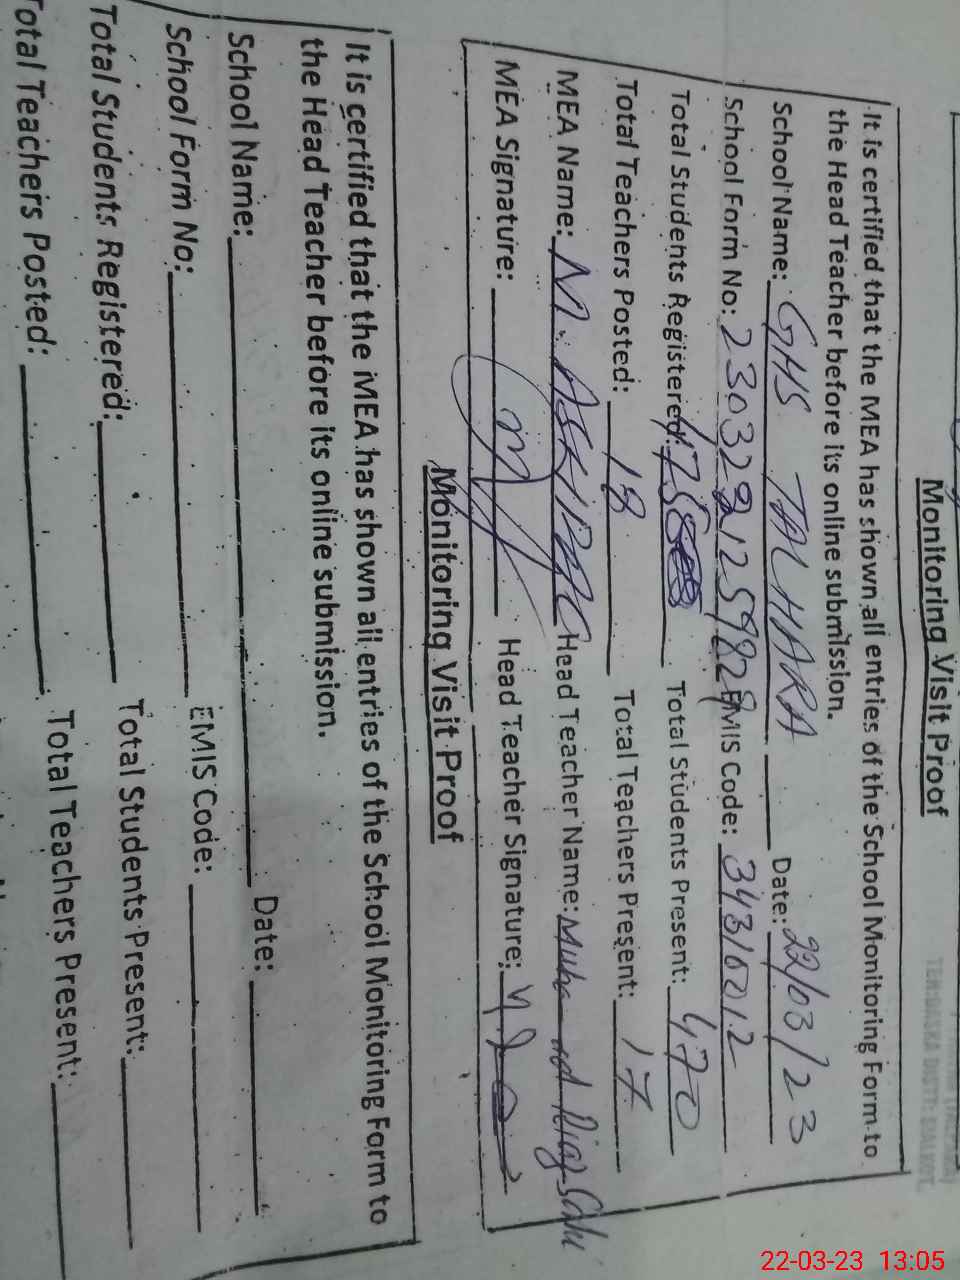 Monitoring Visit Proof
It is certified that the MEA has shown all entries of the School Monitoring Form to
the Head Teacher before its online submission.
School Name: GHS TALHARA Date: 22/03/23
School Form No: EMIS Code: 34310012
Total Students Registered: 475 Total Students Present: 470
Total Teachers Posted: 18 Total Teachers Present: 17
MEA Name: M. ASHRAF Head Teacher Name:
MEA Signature: Head Teacher Signature:
Monitoring Visit Proof
It is certified that the MEA has shown all entries of the School Monitoring Form to
the Head Teacher before its online submission.
School Name: Date:
School Form No: EMIS Code:
Total Students Registered: Total Students Present:
Total Teachers Posted: Total Teachers Present:
22-03-23 13:05